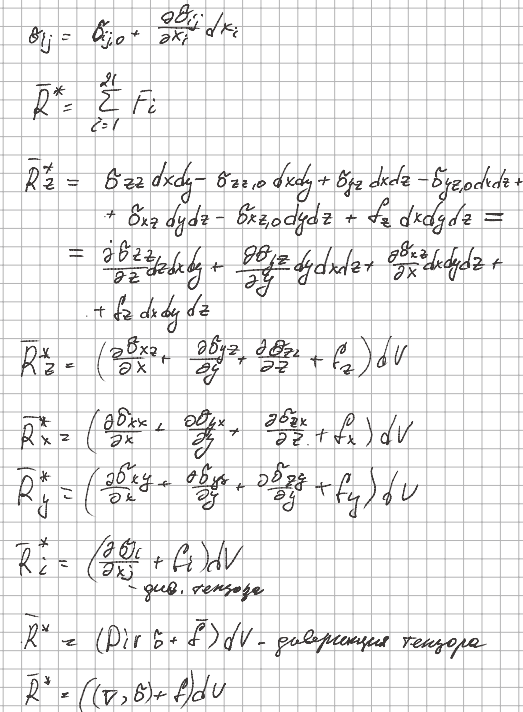 σij = σij,0 + ∂σij/∂xi dxi
R̄* = Σ(i=1..21) F̄i
R̄*z = σzz dxdy − σzz,0 dxdy + σyz dxdz − σyz,0 dxdz +
+ σxz dydz − σxz,0 dydz + fz dxdydz =
= ∂σzz/∂z dzdxdy + ∂σyz/∂y dydxdz + ∂σxz/∂x dxdydz +
+ fz dxdydz
R̄*z = (∂σxz/∂x + ∂σyz/∂y + ∂σzz/∂z + fz) dV
R̄*x = (∂σxx/∂x + ∂σyx/∂y + ∂σzx/∂z + fx) dV
R̄*y = (∂σxy/∂x + ∂σyy/∂y + ∂σzy/∂y + fy) dV
R̄*i = (∂σji/∂xj + fi) dV
- див. тензора
R̄* = (Div σ + f̄) dV - диверкция тензора
R̄* = ((∇, σ) + f) dV